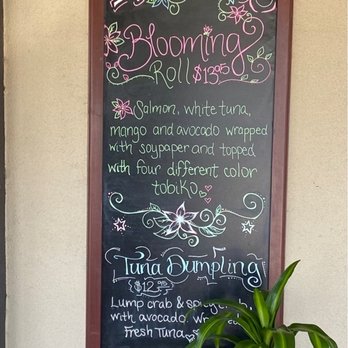 Blooming
Roll $13.95
Salmon, white tuna,
mango and avocado wrapped
with soypaper and topped
with four different color
tobiko.
Tuna Dumpling
$12.95
Lump crab &
with avocado. wr
Fresh Tuna